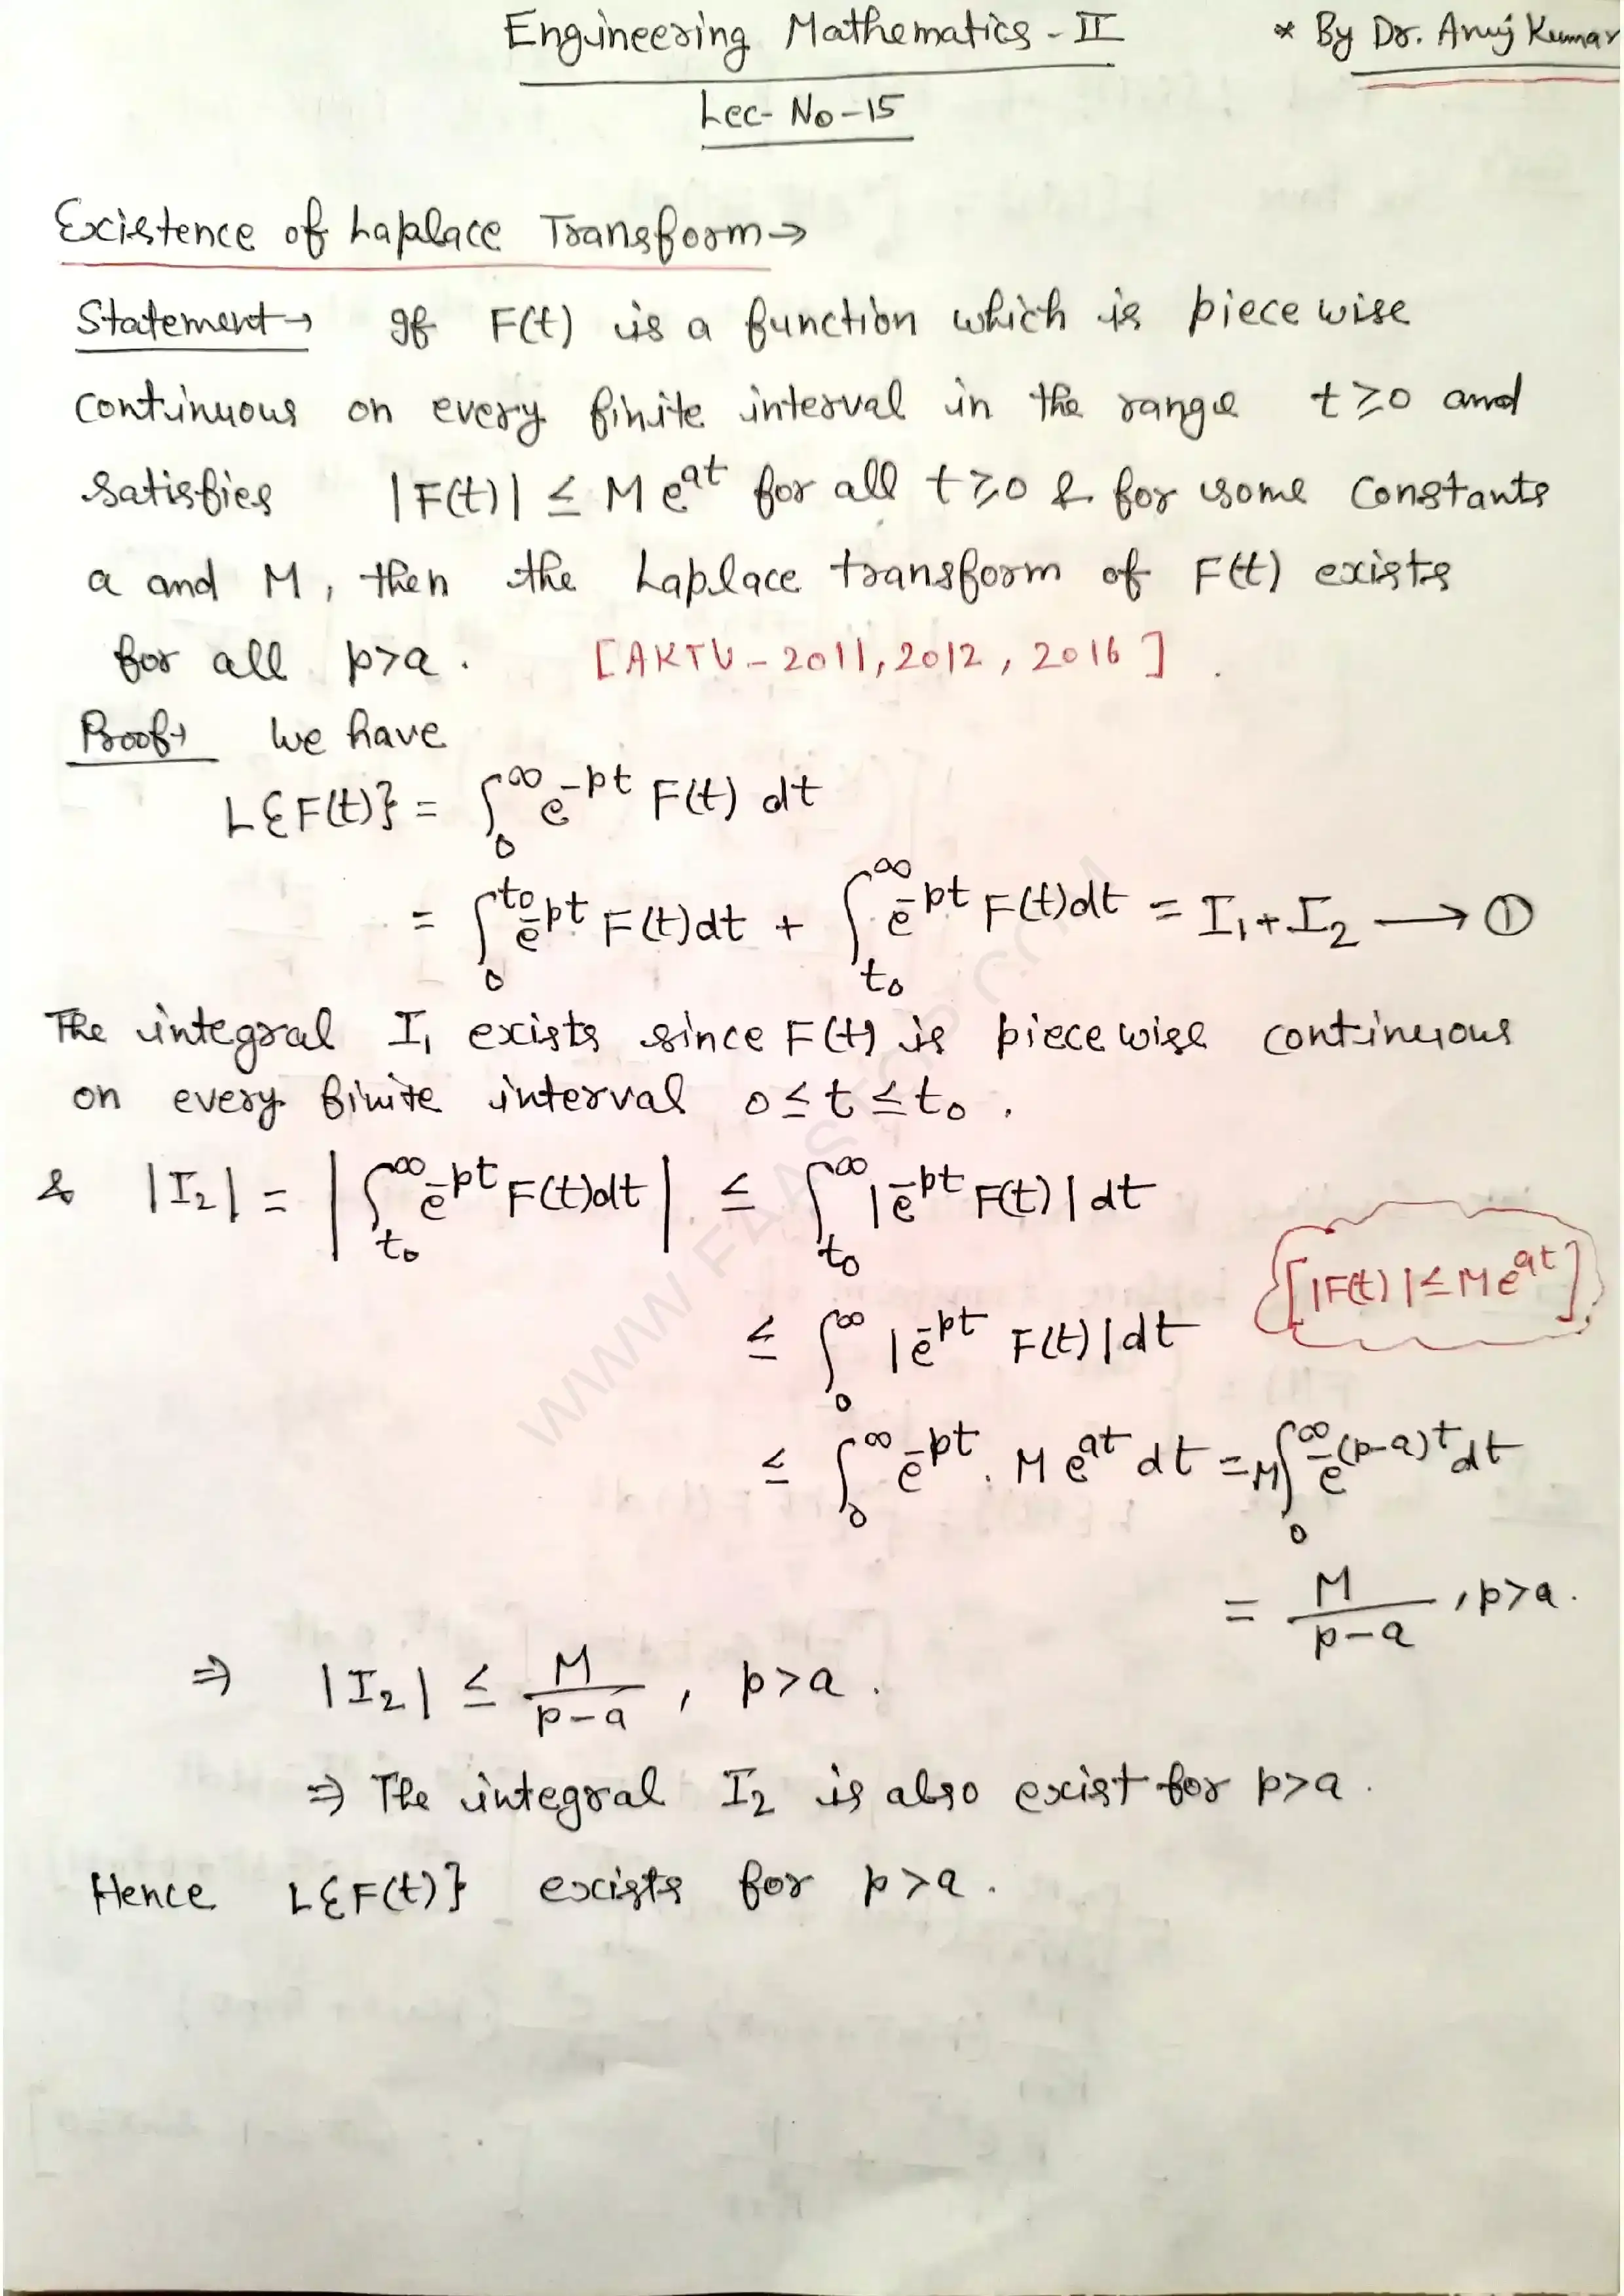 Engineering Mathematics - II * By Dr. Anuj Kumar
Lec- No-15
Existence of Laplace Transform→
Statement→ If F(t) is a function which is piece wise
continuous on every finite interval in the range t≥0 and
satisfies |F(t)| ≤ M e^{at} for all t≥0 & for some constants
a and M, then the Laplace transform of F(t) exists
for all p>a. [AKTU-2011,2012,2016].
Proof→ We have
L{F(t)} = ∫_0^∞ e^{-pt} F(t) dt
= ∫_0^{t_0} e^{-pt} F(t)dt + ∫_{t_0}^∞ e^{-pt} F(t)dt = I_1+I_2 → ①
The integral I_1 exists since F(t) is piece wise continuous
on every finite interval 0≤t≤t_0.
& |I_2| = |∫_{t_0}^∞ e^{-pt} F(t)dt| ≤ ∫_{t_0}^∞ |e^{-pt} F(t)| dt
[|F(t)|≤Me^{at}]
≤ ∫_0^∞ |e^{-pt} F(t)|dt
≤ ∫_0^∞ e^{-pt}. M e^{at} dt = M∫_0^∞ e^{-(p-a)t} dt
= M/(p-a), p>a.
⇒ |I_2| ≤ M/(p-a), p>a.
⇒ The integral I_2 is also exist for p>a.
Hence L{F(t)} exists for p>a.